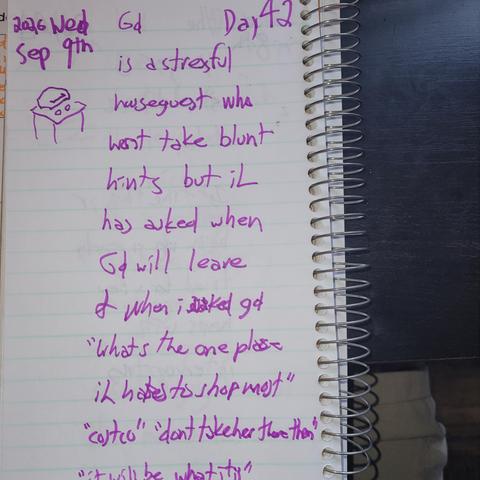 2026 Wed Gd Day 42
Sep 9th is a stresful
houseguest who
wont take blunt
hints but iL
has asked when
Gd will leave
& when i asked gd
"whats the one place
iL hates to shop most"
"costco" "dont take her there then"
"it will be what it is"